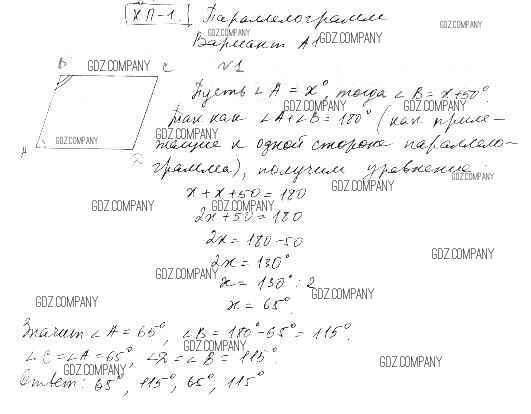 КП-1. Параллелограмм
GDZ.COMPANY
GDZ.COMPANY
Вариант А1 GDZ.COMPANY
В GDZ.COMPANY С №1
Пусть ∠A = x°, тогда ∠B = x+50°
GDZ.COMPANY GDZ.COMPANY
так как ∠A+∠B = 180° (как приле-
GDZ.COMPANY
GDZ.COMPANY
жащие к одной стороне параллело-
А Д
грамма), получим уравнение:
GDZ.COMPANY
GDZ.COMPANY
x + x + 50 = 180
GDZ.COMPANY GDZ.COMPANY
2x + 50 = 180
2x = 180-50
GDZ.COMPANY
2x = 130°
GDZ.COMPANY
x = 130° : 2
GDZ.COMPANY
GDZ.COMPANY
x = 65°.
Значит ∠A = 65°, ∠B = 180°-65° = 115°.
GDZ.COMPANY
∠C = ∠A = 65°, ∠Д = ∠B = 115°.
GDZ.COMPANY GDZ.COMPANY
Ответ: 65°, 115°, 65°, 115°